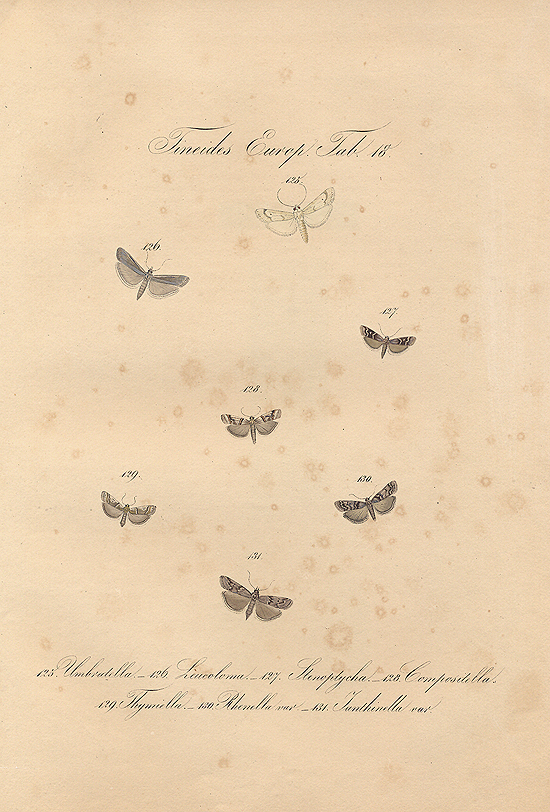 Tineides Europ. Tab. 18.
125.
126.
127.
128.
129.
130.
131.
125. Umbratella._126. Leucoloma._127. Stenoptycha._128. Compositella.
129. Thymiella._130. Rhenella var._131. Janthinella var.